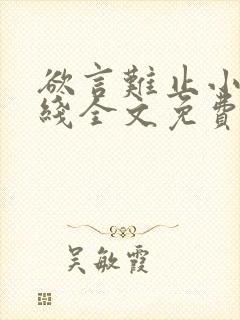 欲言難止小
綫全文免費
吴敏霞